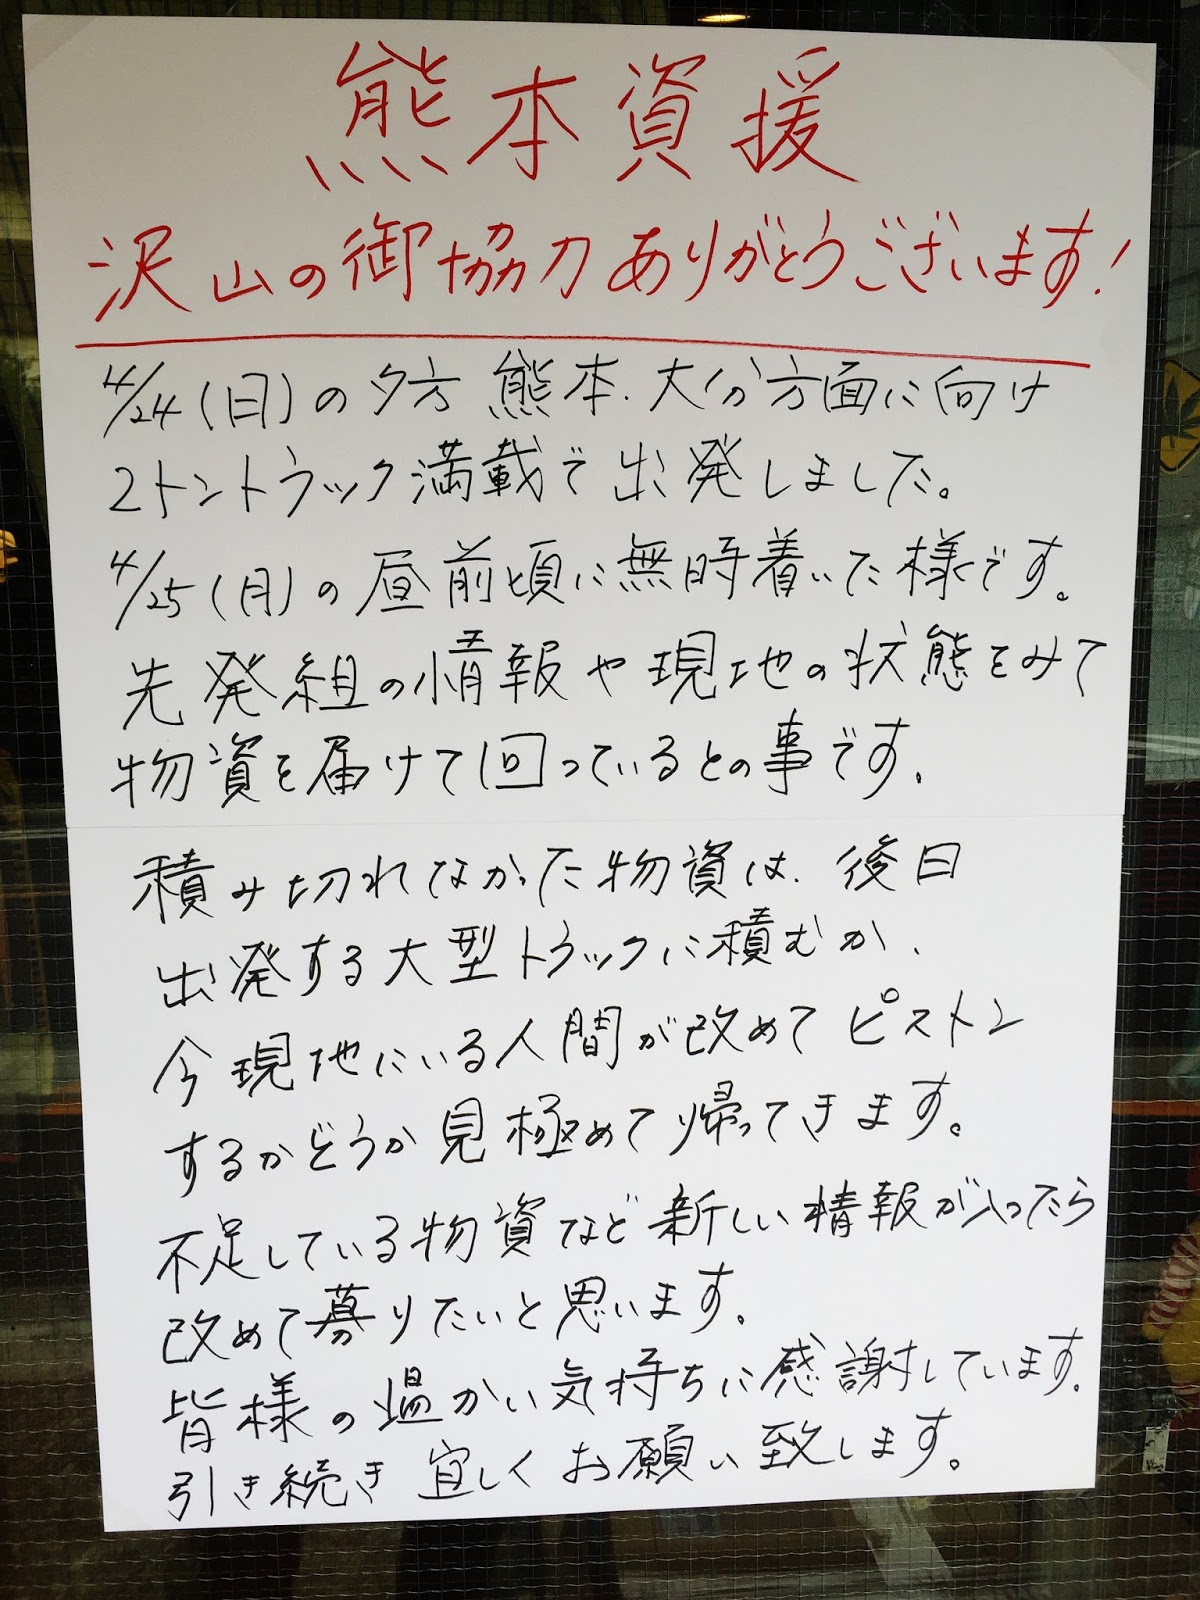 熊本資援
沢山の御協力ありがとうございます!
4/24(日)の夕方 熊本、大分方面に向け
2トントラック満載で出発しました。
4/25(月)の昼前頃に無時着いた様です。
先発組の情報や現地の状態をみて
物資を届けて回っているとの事です。
積み切れなかった物資は、後日
出発する大型トラックに積むか、
今現地にいる人間が改めてピストン
するかどうか見極めて帰ってきます。
不足している物資など新しい情報が入ったら
改めて募りたいと思います。
皆様の温かい気持ちに感謝しています。
引き続き宜しくお願い致します。